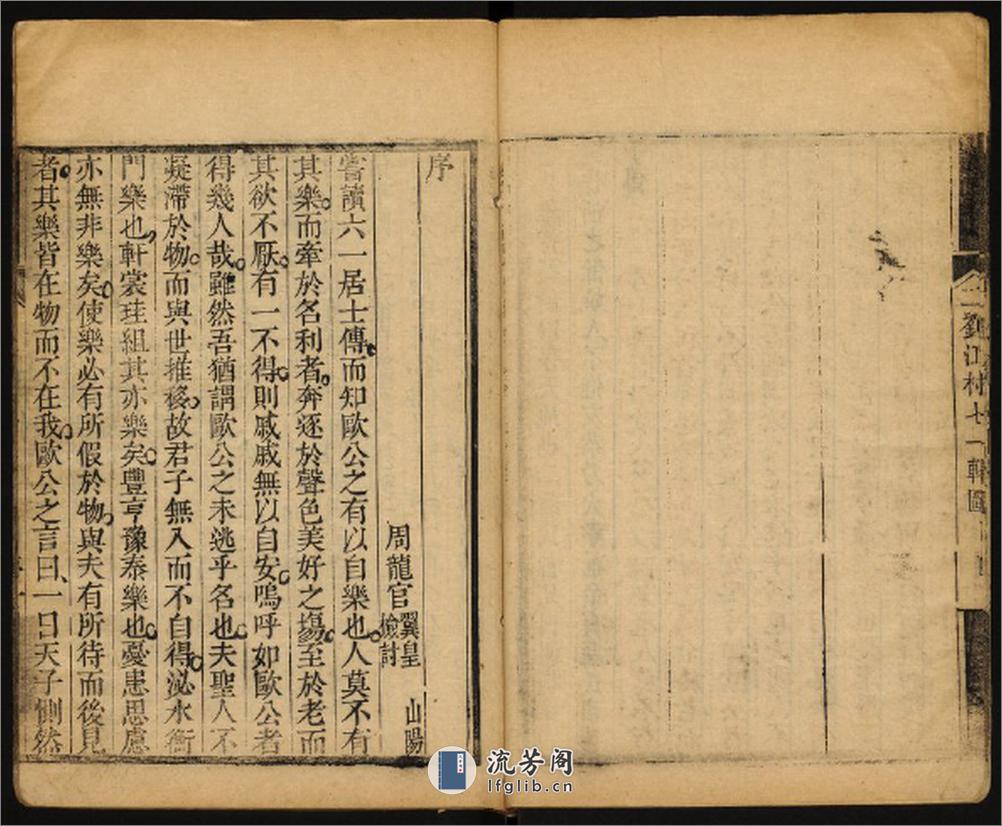 劉江村七一軒圖
序
周龍官 翼皇 檢討 山陽
嘗讀六一居士傳而知歐公之有以自樂也人莫不有
其樂而牽於名利者奔逐於聲色美好之場至於老而
其欲不厭有一不得則戚戚無以自安嗚呼如歐公者
得幾人哉雖然吾猶謂歐公之未逃乎名也夫聖人不
凝滯於物而與世推移故君子無入而不自得泌水衡
門樂也軒裳珪組其亦樂矣豐亨豫泰樂也憂患思慮
亦無非樂矣使樂必有所假於物與夫有所待而後見
者其樂皆在物而不在我歐公之言曰一日天子惻然
流芳阁
lfglib.cn